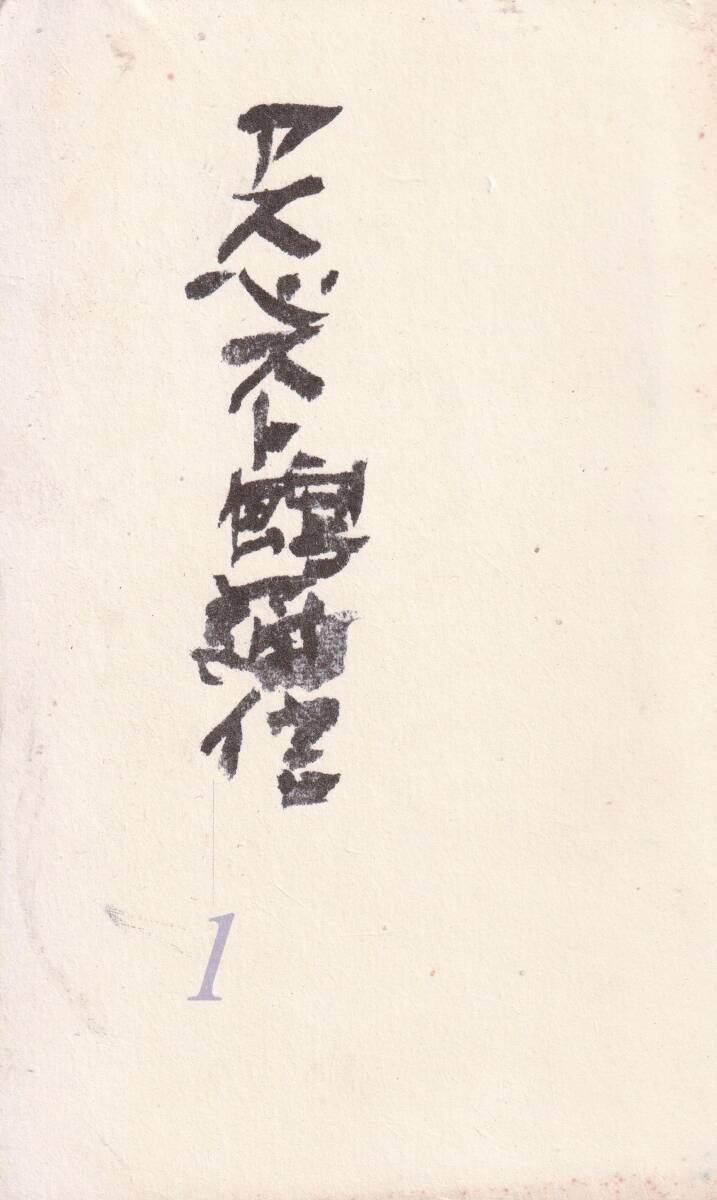 アスベスト館通信
1